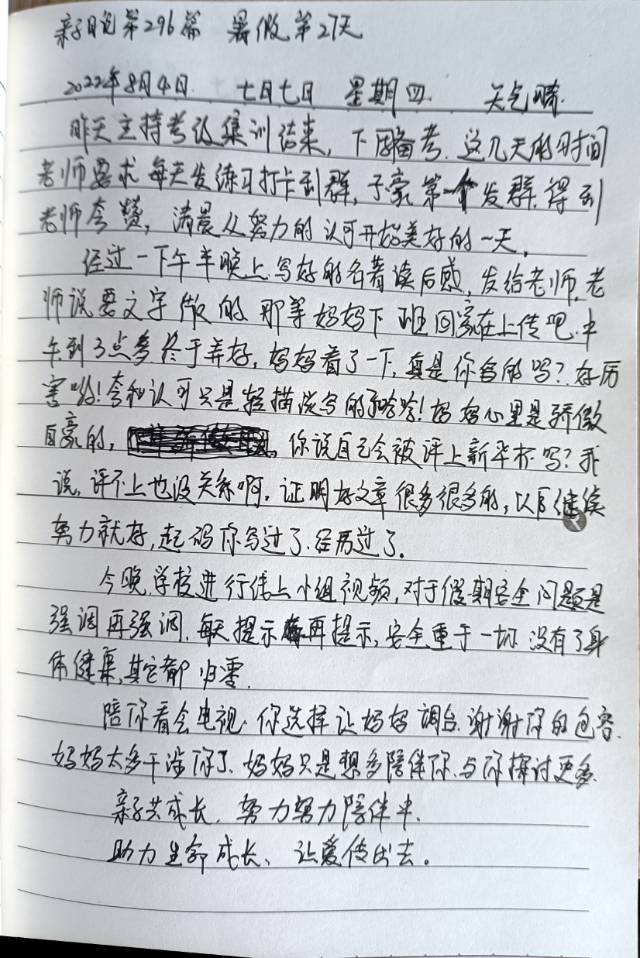 亲子日记第296篇 暑假第27天
2022年8月4日 七月七日 星期四 天气晴
昨天主持考级集训结束,下周备考.这几天的时间
老师要求每天发练习打卡到群,子豪第一个发群.得到
老师夸赞,清晨从努力的认可开始美好的一天。
经过一下午半晚上写好的名著读后感,发给老师,老
师说要文字版的.那等妈妈下班回家在上传吧.中
午到3点多终于弄好,妈妈看了一下,真是你写的吗?好厉
害哟!夸和认可只是轻描淡写的哈哈!妈妈心里是骄傲
自豪的,你说自己会被评上新华杯吗?我
说,评不上也没关系啊,证明好文章很多很多的,以后继续
努力就好,起码你写过了.经历过了。
今晚,学校进行线上小组视频,对于假期安全问题是
强调再强调.每天提示再提示,安全重于一切.没有了身
体健康,其它都归零.
陪你看会电视.你选择让妈妈调台.谢谢你的包容.
妈妈太多干涉你了、妈妈只是想多陪伴你.与你探讨更多
亲子共成长,努力努力陪伴中.
助力生命成长、让爱传出去。